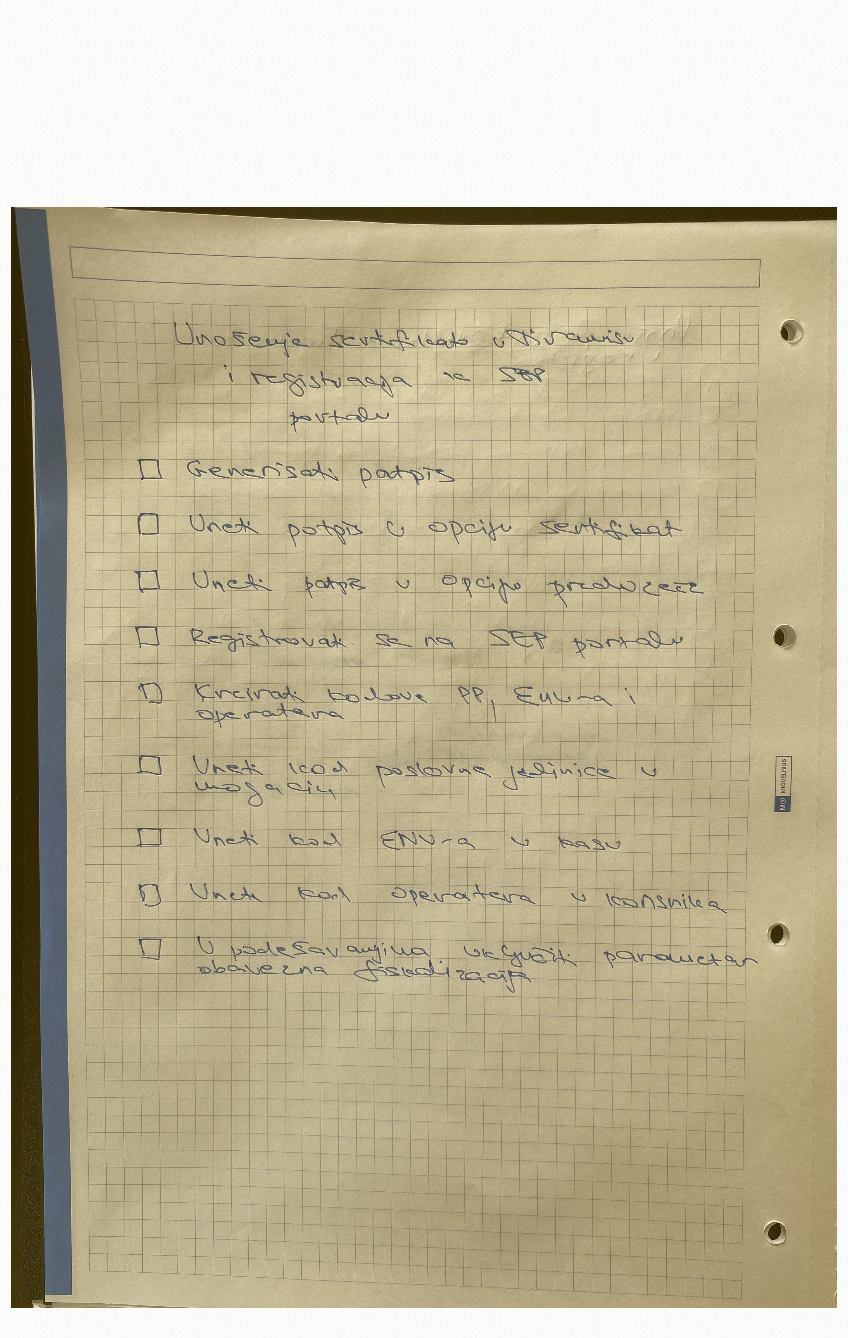 Unošenje sertifikata u Tiramisu
i registracija na SEP
portalu
Generisati potpis
Uneti potpis u opciju sertifikat
Uneti potpis u opciju preduzeće
Registrovati se na SEP portalu
Kreirati kodove PP, ENU-a i
operatera
Uneti kod poslovne jedinice u
magacin
Uneti kod ENU-a u kasu
Uneti kod operatera u korisnika
U podešavanjima uključiti parametar
obavezna fiskalizacija